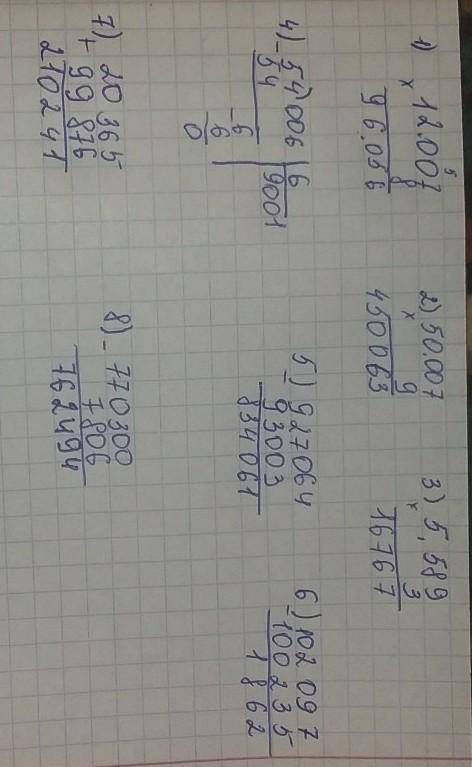 1) 12.007
5
× 8
96.056
2) 50.007
× 9
450063
3) 5,589
× 3
16767
4) - 54'006 | 6
54 | 9001
- 6
6
0
5) - 927064
93003
834061
6) - 102097
100235
1862
7) 20 365
+ 99 876
210241
8) - 770300
7806
762494